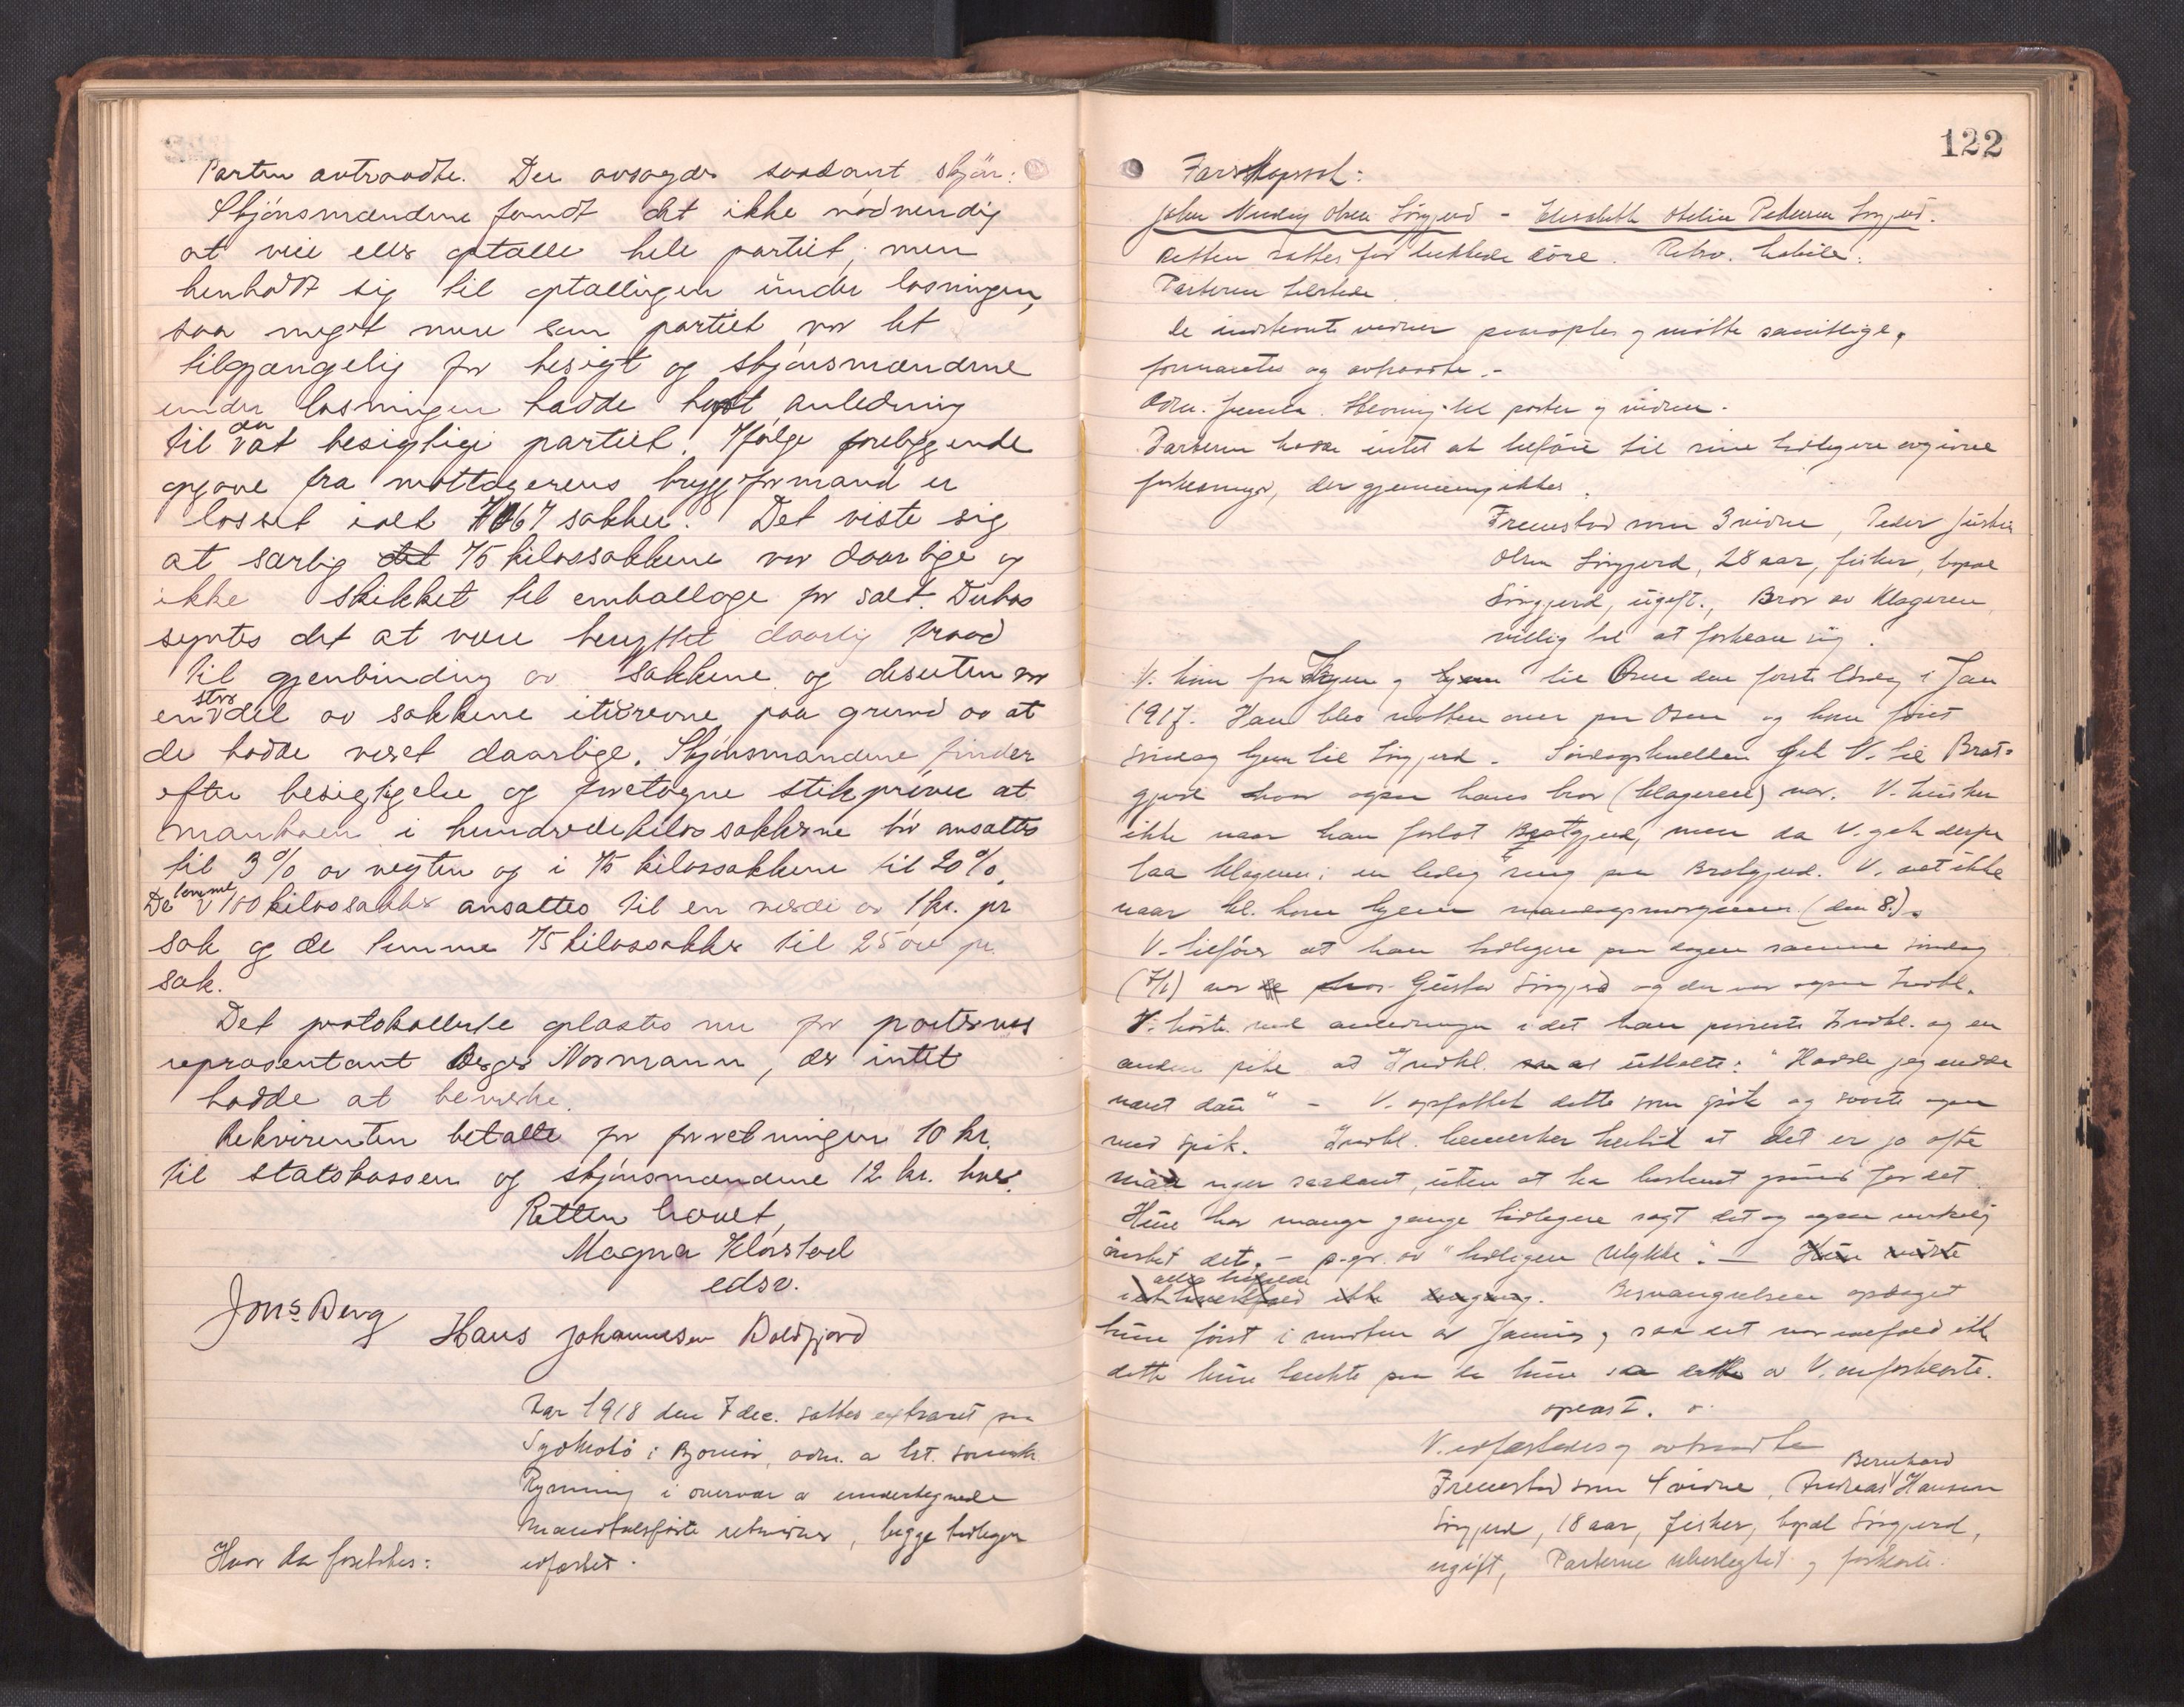 Parten avtraadte. Der avsagdes saadant skjön:
Skjönsmændene fandt det ikke nödvendig
at veie eller optælle hele partiet, men
henholdt sig til optællingen under losningen,
saa meget mere som partiet var let
tilgjængelig for besigt og skjönsmændene
under losningen hadde havt anledning
til da at besigtige partiet. Ifölge foreliggende
opgave fra mottagerens bryggeformand er
losset ialt 7067 sække. Det viste sig
at særlig det 75 kilossækkene var daarlige og
ikke skikket til emballage for salt. Dertil
syntes det at være benyttet daarlig traad
til gjenbinding av sækkene og desuten var
en stor del av sækkene iturevne paa grund av at
de hadde været daarlige. Skjönsmændene finder
efter besigtigelse og foretagne stikpröver at
mankoen i hundredekilos sækkene bör ansættes
til 3% av vegten og i 75 kilossækkene til 20%.
De tomme 100 kilossækker ansættes til en værdi av 1 kr. pr
sæk og de tomme 75 kilossækker til 25 öre pr.
sæk.
Det protokollerte oplæstes nu for parternes
repræsentant Normann, der intet
hadde at bemerke.
Rekvirenten betalte for forretningen 10 kr.
til statskassen og skjönsmændene 12 kr. hver.
Retten hævet,
Magna Klörstad
edsv.
Jons Berg Hans Johannesen Boldfjord
Aar 1918 den 7 dec. sattes extraret paa
i Bjornör, adm. a
Rynning i overvær av undertegnede
mandtalsförte retsvidner, begge tidligere
Hvor da foretokes: edfæstet.
122
Farskapssak:
John Olsen Sörgjerd - Elisabeth Otelie Pedersen Sörgjerd.
Retten sattes for lukkede döre. Retsv. habile.
Parterne tilstede.
De indstevnte vidner paaroptes og mötte samtlige,
formanetes og avtraadte.-
Adm. fremla Stevning til parter og vidner.
Parterne hadde intet at tilföie til sine tidligere avgivne
forklaringer, der gjennemgikkes.
Fremstod som 3 vidne, Peder
Olsen Sörgjerd, 28 aar, fisker, bopæl
Sörgjerd, ugift., Bror av Klageren
villig til at forklare sig.
V. kom fra og hjem til Osen den förste lördag i Jan
1917. Han blev natten over paa Osen og kom först
söndag hjem til Sörgjerd. Söndagskvelden gik V. til Brat-
gjerd hvor ogsaa hans bror (klageren) var. V. husker
ikke naar han forlot Bratgjerd, men da V. gik derfra
laa klageren i en ledig seng paa Bratgjerd. V. vet ikke
naar kl. kom hjem mandagsmorgenen (den 8.).
V. tilföier at han tidligere paa dagen samme söndag
(7/1) var hos Gustav Sörgjerd og der var ogsaa Indkl.
V. hörte ved anledningen idet han passerte Indkl. og en
anden pike at Indkl. uttalte: "Hadde jeg endda
været dau" - V. opfattet dette som spök og svarte ogsaa
med spök. Indkl. bemerker hertil at det er jo ofte
man siger saadant, uten at ha bestemt grund for det.
Hun har mange gange tidligere sagt det og ogsaa virkelig
önsket det. - p.gr. av "tidligere Ulykke". - Hun visste
ikke engang. Besvangrelsen opdaget
hun först i midten av Januar, saa det var ialfald ikke
dette hun tænkte paa da hun sa dette av V. omforklarte.
oplæst. v.
V. edfæstedes og avtraadte
Fremstod som 4 vidne, Andreas Bernhard Hansen
Sörgjerd, 18 aar, fisker, bopæl Sörgjerd,
ugift, Parterne ubeslegtet og forklarte: